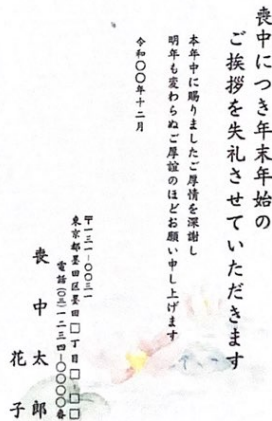 喪中につき年末年始の
ご挨拶を失礼させていただきます
本年中に賜りましたご厚情を深謝し
明年も変わらぬご厚誼のほどお願い申し上げます
令和〇〇年十二月
〒一三一-〇〇三一
東京都墨田区墨田□丁目□□□
電話(〇三)一二三四-〇〇〇〇番
喪中太郎
花子